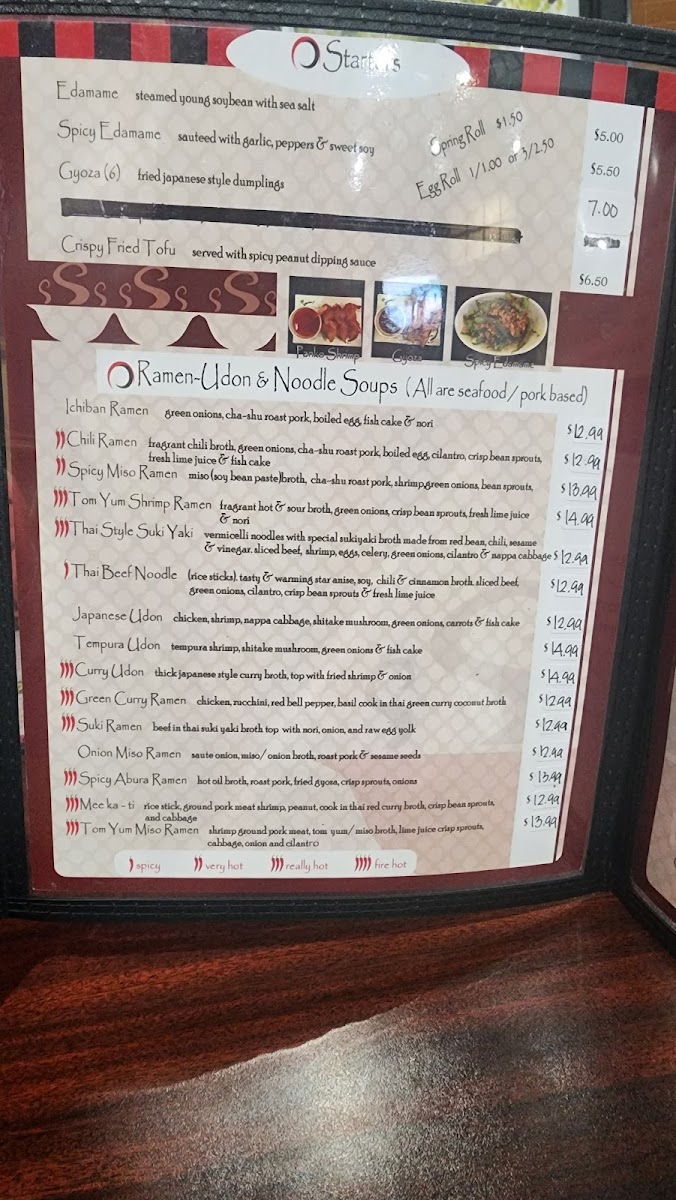 Starters
Edamame steamed young soybean with sea salt $5.00
Spicy Edamame sauteed with garlic, peppers & sweet soy $5.50
Spring Roll $1.50
Egg Roll 1/1.00 or 3/2.50
Gyoza (6) fried japanese style dumplings 7.00
Crispy Fried Tofu served with spicy peanut dipping sauce $6.50
Panko Shrimp Gyoza Spicy Edamame
Ramen-Udon & Noodle Soups (All are seafood/pork based)
Ichiban Ramen green onions, cha-shu roast pork, boiled egg, fish cake & nori $12.99
Chili Ramen fragrant chili broth, green onions, cha-shu roast pork, boiled egg, cilantro, crisp bean sprouts, $12.99
fresh lime juice & fish cake
Spicy Miso Ramen miso (soy bean paste)broth, cha-shu roast pork, shrimp,green onions, bean sprouts, $13.99
Tom Yum Shrimp Ramen fragrant hot & sour broth, green onions, crisp bean sprouts, fresh lime juice $14.99
& nori
Thai Style Suki Yaki vermicelli noodles with special sukiyaki broth made from red bean, chili, sesame
& vinegar. sliced beef, shrimp, eggs, celery, green onions, cilantro & nappa cabbage $12.99
Thai Beef Noodle (rice sticks). tasty & warming star anise, soy, chili & cinnamon broth. sliced beef, $12.99
green onions, cilantro, crisp bean sprouts & fresh lime juice
Japanese Udon chicken, shrimp, nappa cabbage, shitake mushroom, green onions, carrots & fish cake $12.99
Tempura Udon tempura shrimp, shitake mushroom, green onions & fish cake $14.99
Curry Udon thick japanese style curry broth, top with fried shrimp & onion $14.99
Green Curry Ramen chicken, zucchini, red bell pepper, basil cook in thai green curry coconut broth $12.99
Suki Ramen beef in thai suki yaki broth top with nori, onion, and raw egg yolk $12.99
Onion Miso Ramen saute onion, miso/ onion broth, roast pork & sesame seeds $12.99
Spicy Abura Ramen hot oil broth, roast pork, fried gyoza, crisp sprouts, onions $13.99
Mee ka - ti rice stick, ground pork meat shrimp, peanut, cook in thai red curry broth, crisp bean sprouts, $12.99
and cabbage
Tom Yum Miso Ramen shrimp ground pork meat, tom yum/ miso broth, lime juice crisp sprouts, $13.99
cabbage, onion and cilantro
spicy very hot really hot fire hot